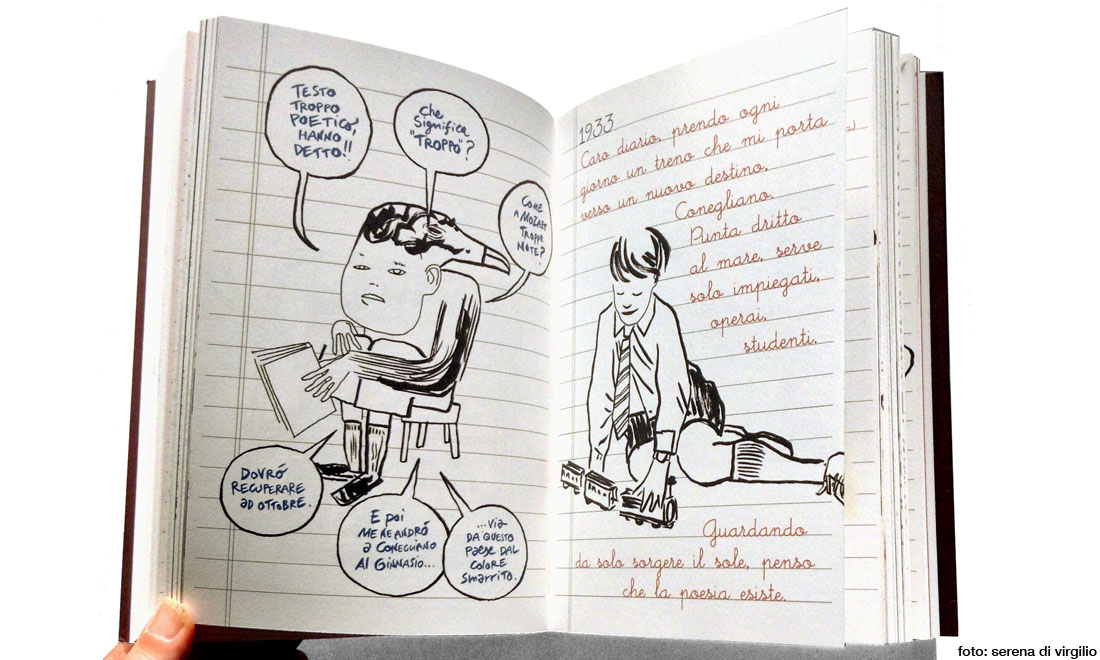 TESTO
TROPPO
POETICO,
HANNO
DETTO!!
Che
significa
"TROPPO"?
COME
A MOZART
TROPPE
NOTE?
DOVRÓ
RECUPERARE
AD OTTOBRE.
E poi
ME NE ANDRÓ
A CONEGLIANO
Al GINNASIO...
...Via
DA QUESTO
PAESE DAL
COLORE
SMARRITO.
1933
Caro diario, prendo ogni
giorno un treno che mi porta
verso un nuovo destino.
Conegliano.
Punta dritto
al mare, serve
solo impiegati,
operai,
studenti.
Guardando
da solo sorgere il sole, penso
che la poesia esiste.
foto: serena di virgilio